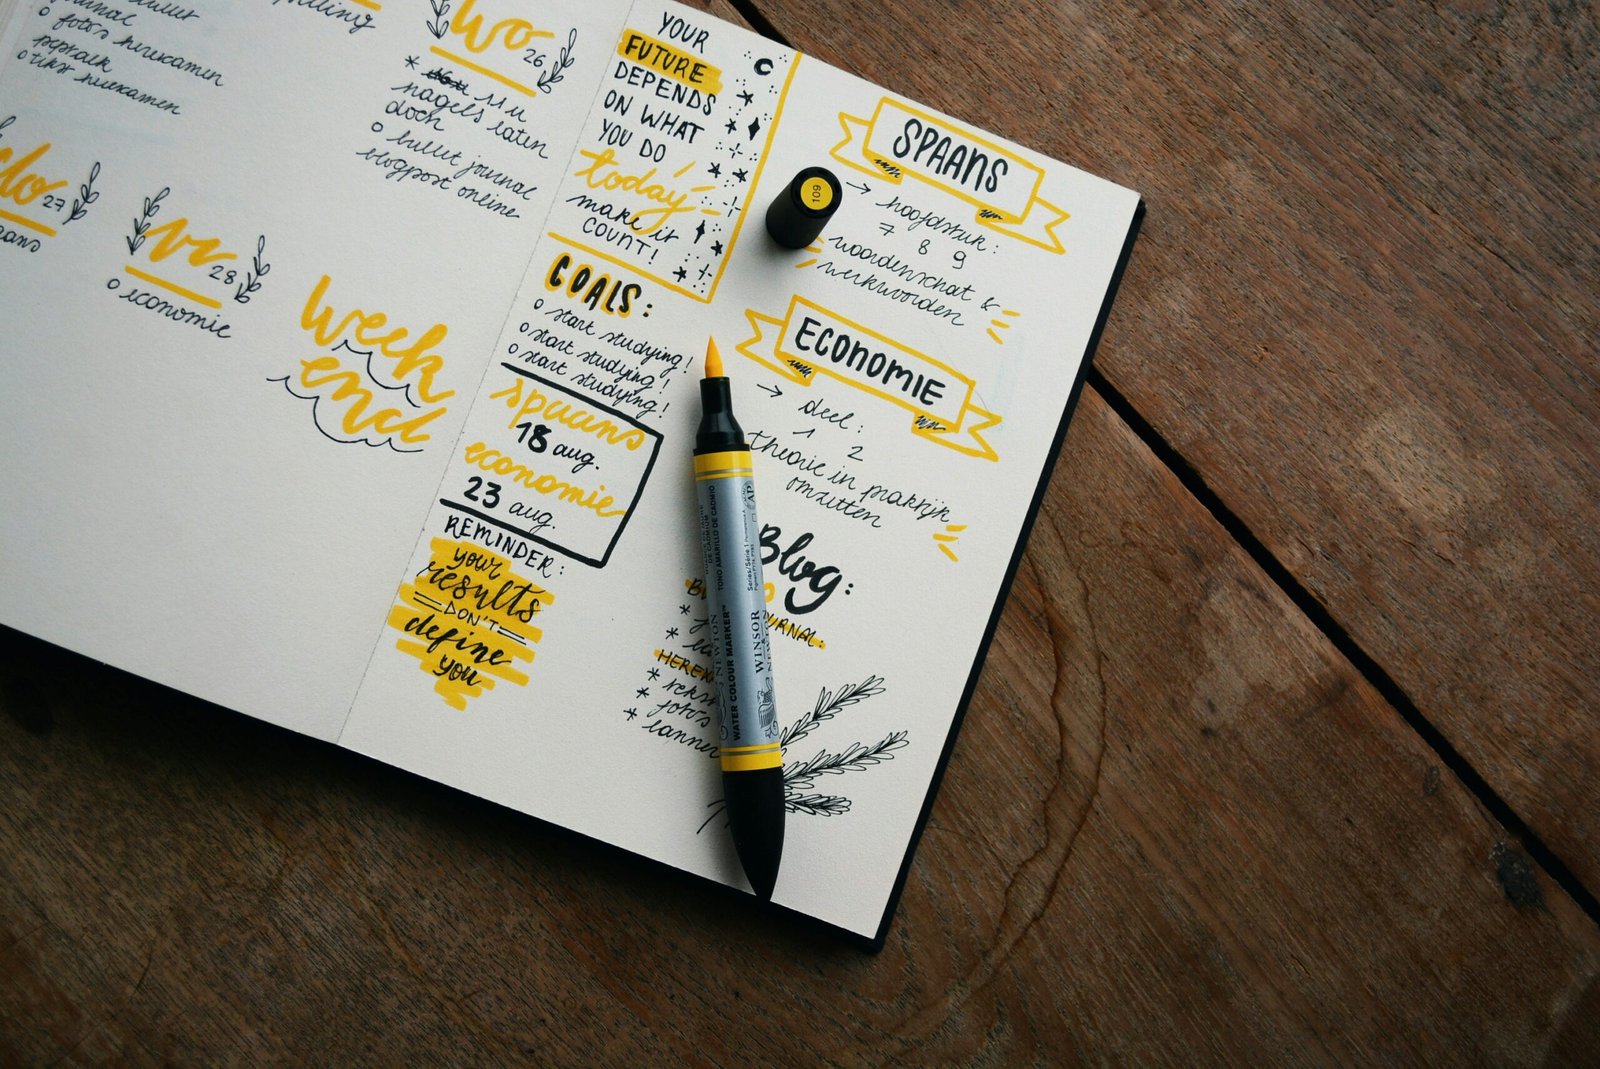 o foto's
o tekst
Wo 26
* 11u
nagels laten
doen
o bullet journal
blogpost online
do 27
vr 28
o economie
Week
end
YOUR
FUTURE
DEPENDS
ON WHAT
YOU DO
today
make it
COUNT!
GOALS:
o start studying!
o start studying!
o start studying!
spaans
18 aug.
economie
23 aug.
REMINDER:
your
results
DON'T
define
you
SPAANS
→ hoofdstuk:
7 8 9
woordenschat &
werkwoorden
ECONOMIE
→ deel:
1 2
theorie in praktijk
omzetten
Blog:
URNAL:
*
*
HEREN
* tekst
* foto's
*
109
WINSOR
NEWTON
WATER COLOUR MARKER™
Series/Série 1
TONO AMARILLO DE CADMIO
AP